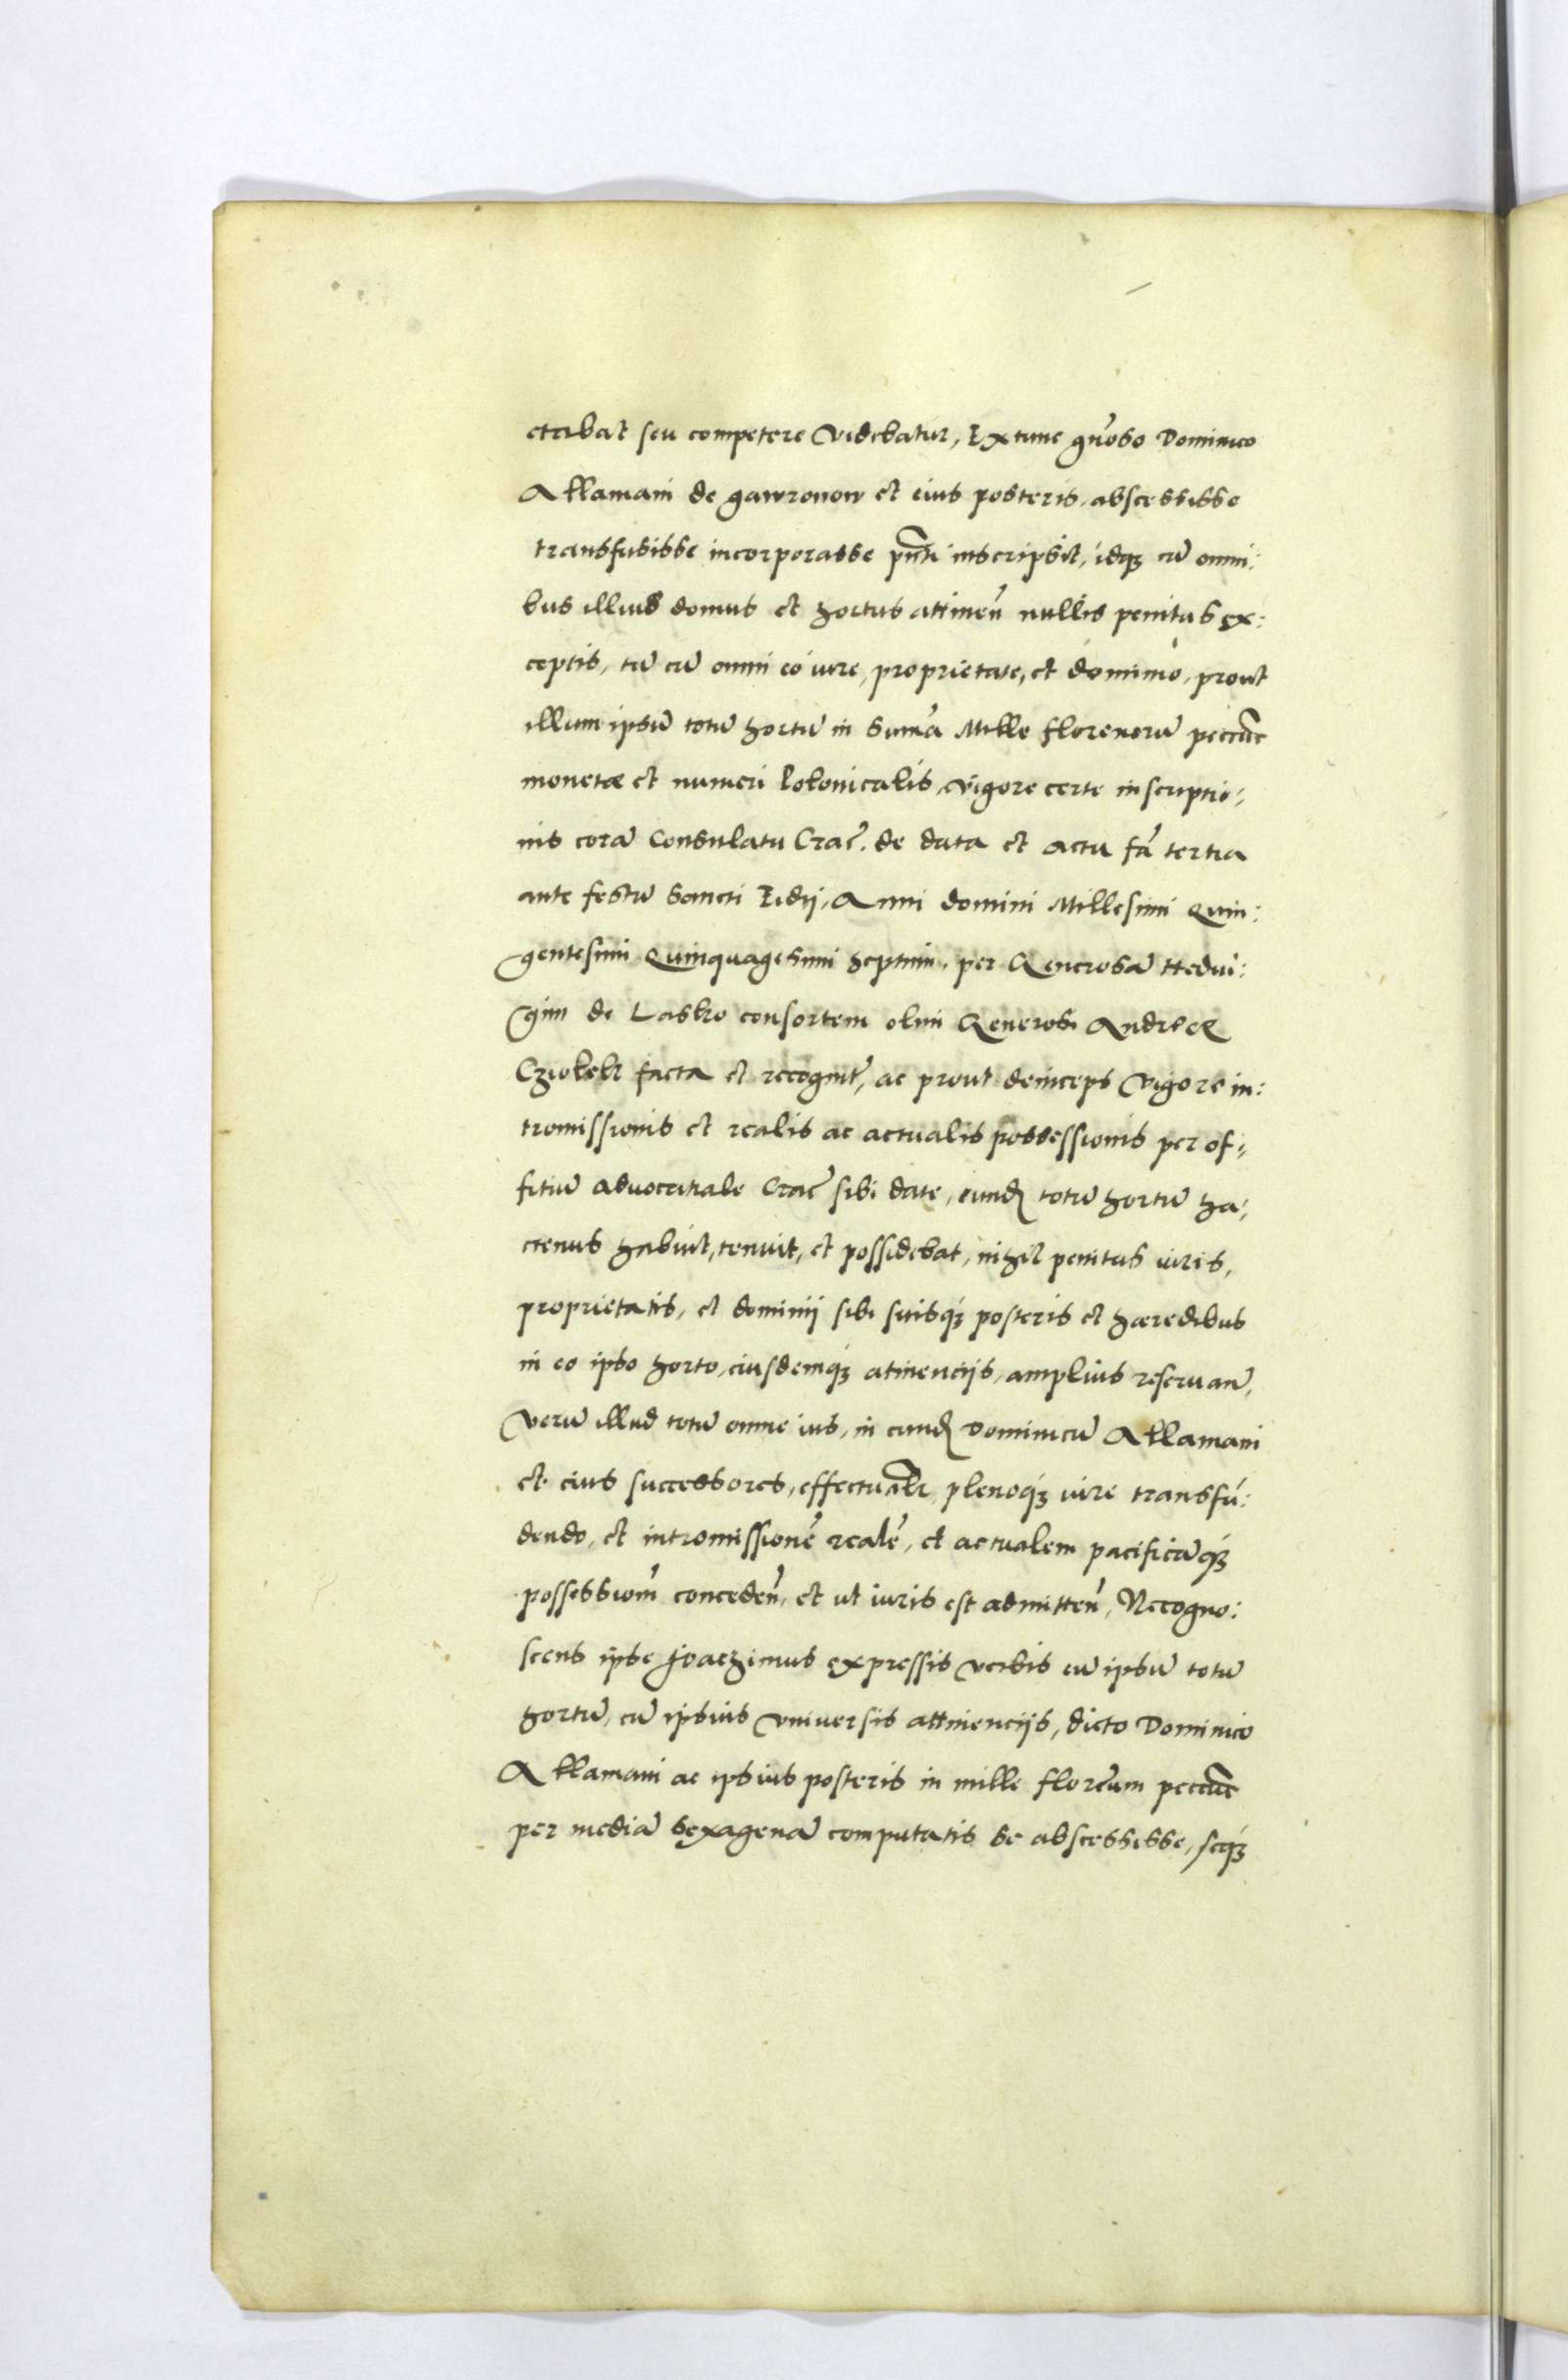 ctabat seu competere videbatur, Extunc gn̄oso Dominico
Allamani de gawronow et eius posteris, abscessisse
transfusisse incorporasse pn̄ti inscripsit, idqꝫ cū omni:
bus illius domus et hortus attineñ nullis penitus ex:
ceptis, tū cū omni eo iure, proprietate, et dominio, prout
illum ipsū totū hortū in sum̄a Mille florenorū peccūe
monetæ et numeri Polonicalis, vigore certe inscriptio:
nis corā Consulatu Crac̄. de data et actu fā tertia
ante festū Sancti Eidij, Anni domini Millesimi Quin:
gentesimi Quinquagesimi septimi, per Generosā Hedui:
gim de Lasko consortem olim Generosi Andreæ
Cziolek facta et recognit̄, ac prout deinceps vigore in:
tromissionis et realis ac actualis possessionis per of:
fitiū advocatiale Crac̄ sibi date, eundꝫ totū hortū ha:
ctenus habuit, tenuit, et possidebat, nihil penitus iuris,
proprietatis, et dominij sibi suisqꝫ posteris et hæredibus
in eo ipso horto, eiusdemqꝫ atinencijs, amplius reservan̄,
verū illud totū omne ius, in eundꝫ Dominicū Allamani
et eius successores, effectuālr plenoqꝫ iure transfū:
dendo, et intromissionē realē, et actualem pacificāqꝫ
possessiom̄ conceden̄, et ut iuris est admitten̄, Recogno:
scens ipse Joachimus expressis verbis eū ipsū totū
hortū, cū ipsius universis attinencijs, dicto Dominico
Allamani ac ipsius posteris in mille florēum peccūe
per mediā sexagenā computatis se abscessisse, seqꝫ